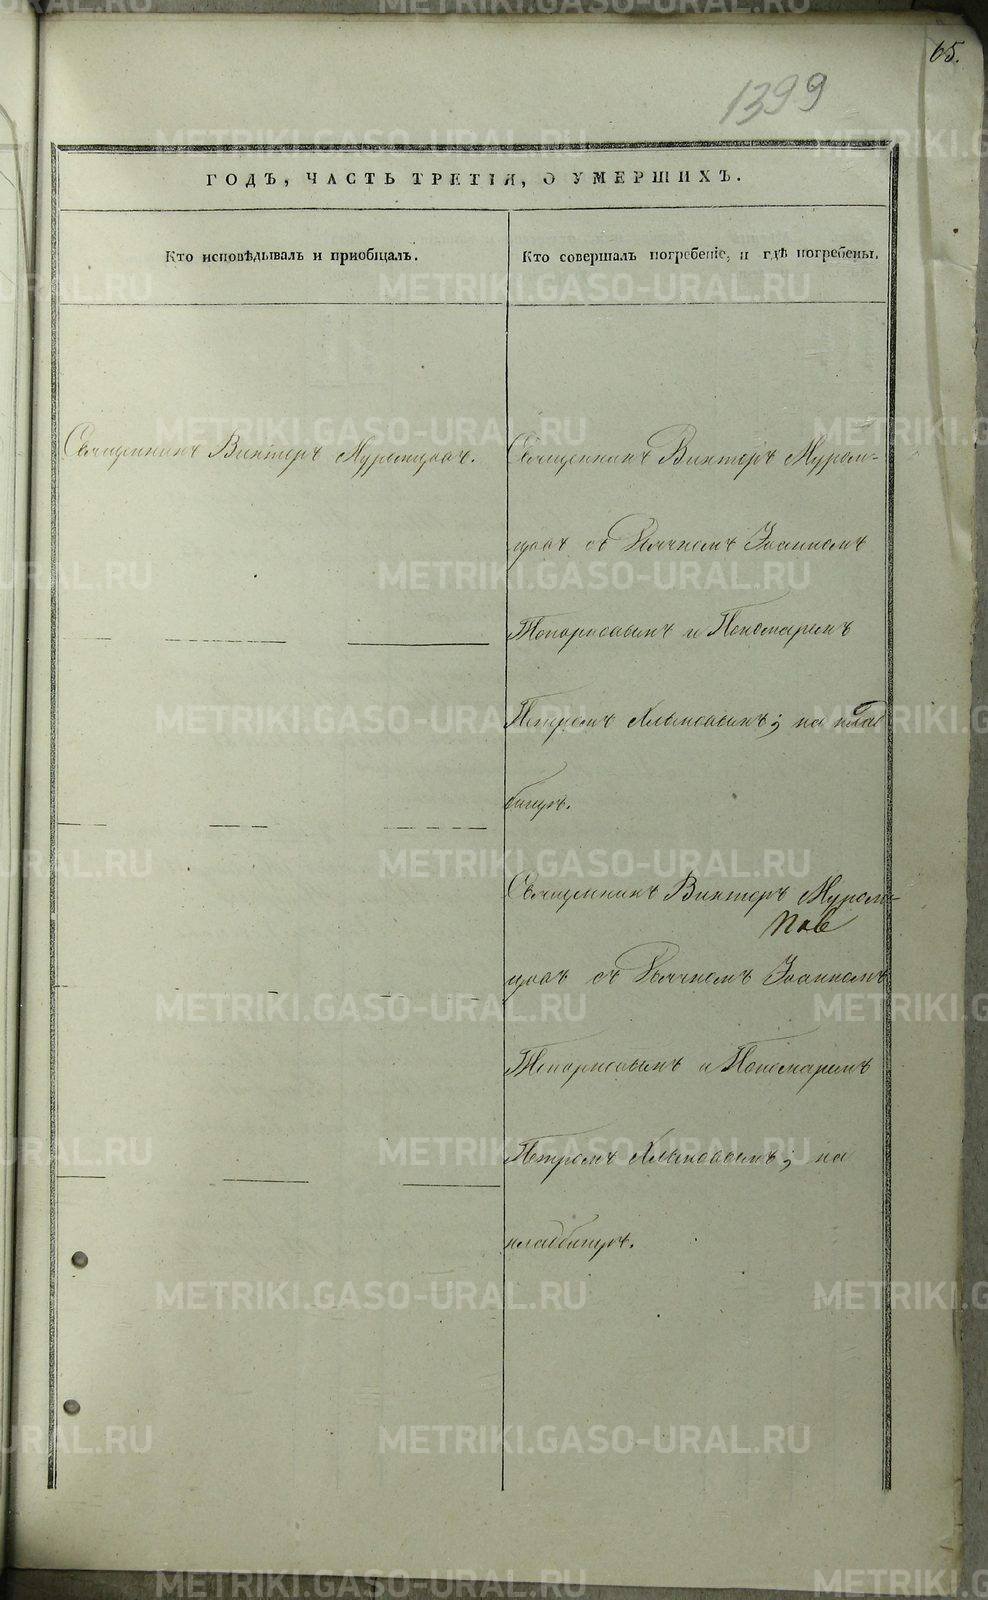 65.
1399
ГОДЪ, ЧАСТЬ ТРЕТІЯ, О УМЕРШИХЪ.
Кто исповѣдывалъ и приобщалъ.
Кто совершалъ погребеніе, и гдѣ погребены.
Священникъ Викторъ Муромцовъ.
Священникъ Викторъ Муром-
цовъ съ Дьячкомъ Іоанномъ
Топорковымъ и Пономаремъ
Петромъ Хлыновымъ; на клад
бищѣ.
Священникъ Викторъ Муром-
цовъ съ Дьячкомъ Іоанномъ
Топорковымъ и Пономаремъ
Петромъ Хлыновымъ; на
кладбищѣ.
METRIKI.GASO-URAL.RU